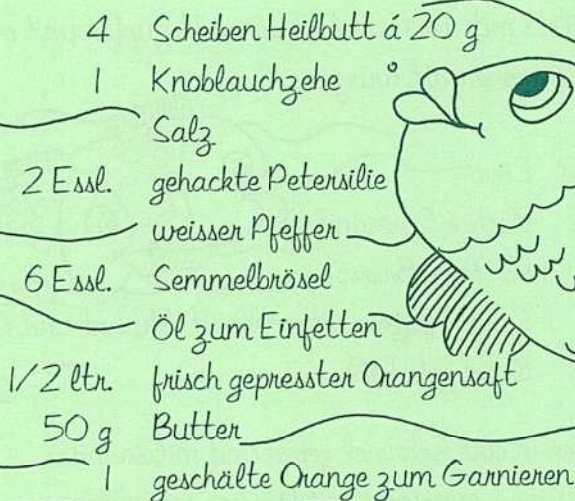 4 Scheiben Heilbutt á 20 g
1 Knoblauchzehe
Salz
2 Essl. gehackte Petersilie
weisser Pfeffer
6 Essl. Semmelbrösel
Öl zum Einfetten
1/2 ltr. frisch gepresster Orangensaft
50 g Butter
1 geschälte Orange zum Garnieren